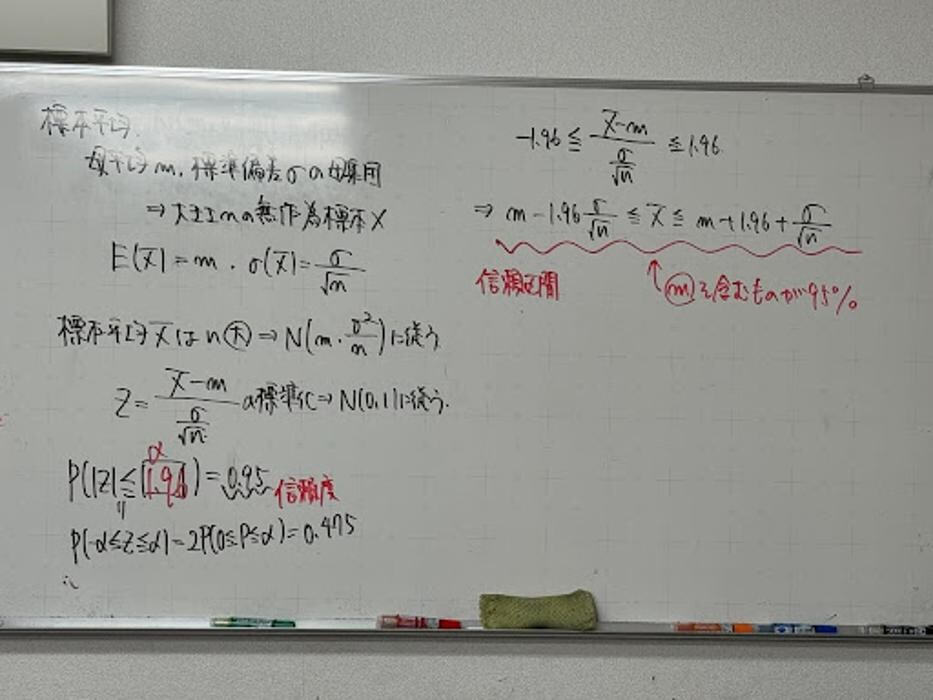 標本平均.
母平均 m, 標準偏差 σ の母集団
⇒ 大きさ n の無作為標本 X
E(X̄) = m . σ(X̄) = σ/√n
標本平均 X̄ は n 大 ⇒ N(m. σ²/n) に従う
Z = (X̄ - m)/(σ/√n) の標準化 ⇒ N(0,1) に従う.
α
P(|Z| ≦ 1.96) = 0.95 信頼度
P(-α ≦ Z ≦ α) = 2P(0 ≦ P ≦ α) = 0.475
-1.96 ≦ (X̄ - m)/(σ/√n) ≦ 1.96
⇒ m - 1.96 σ/√n ≦ X̄ ≦ m + 1.96 + σ/√n
信頼区間
↑ m を含むものが95%